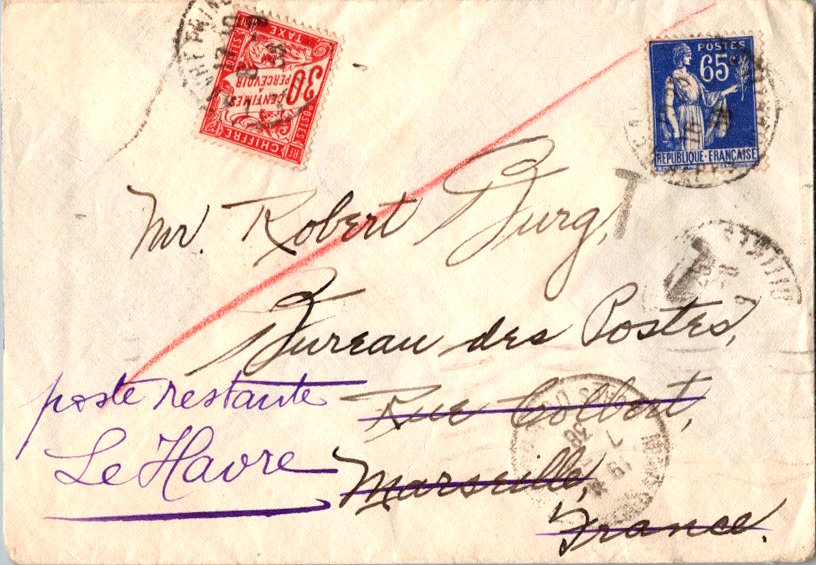 POSTES
65
REPUBLIQUE-FRANCAISE
TAXE
30
CENTIMES
PERCEVOIR
CHIFFRE
POSTES
T
T
Mr. Robert Burg,
Bureau des Postes,
Rue Colbert,
Marseille,
France.
poste restante
Le Havre